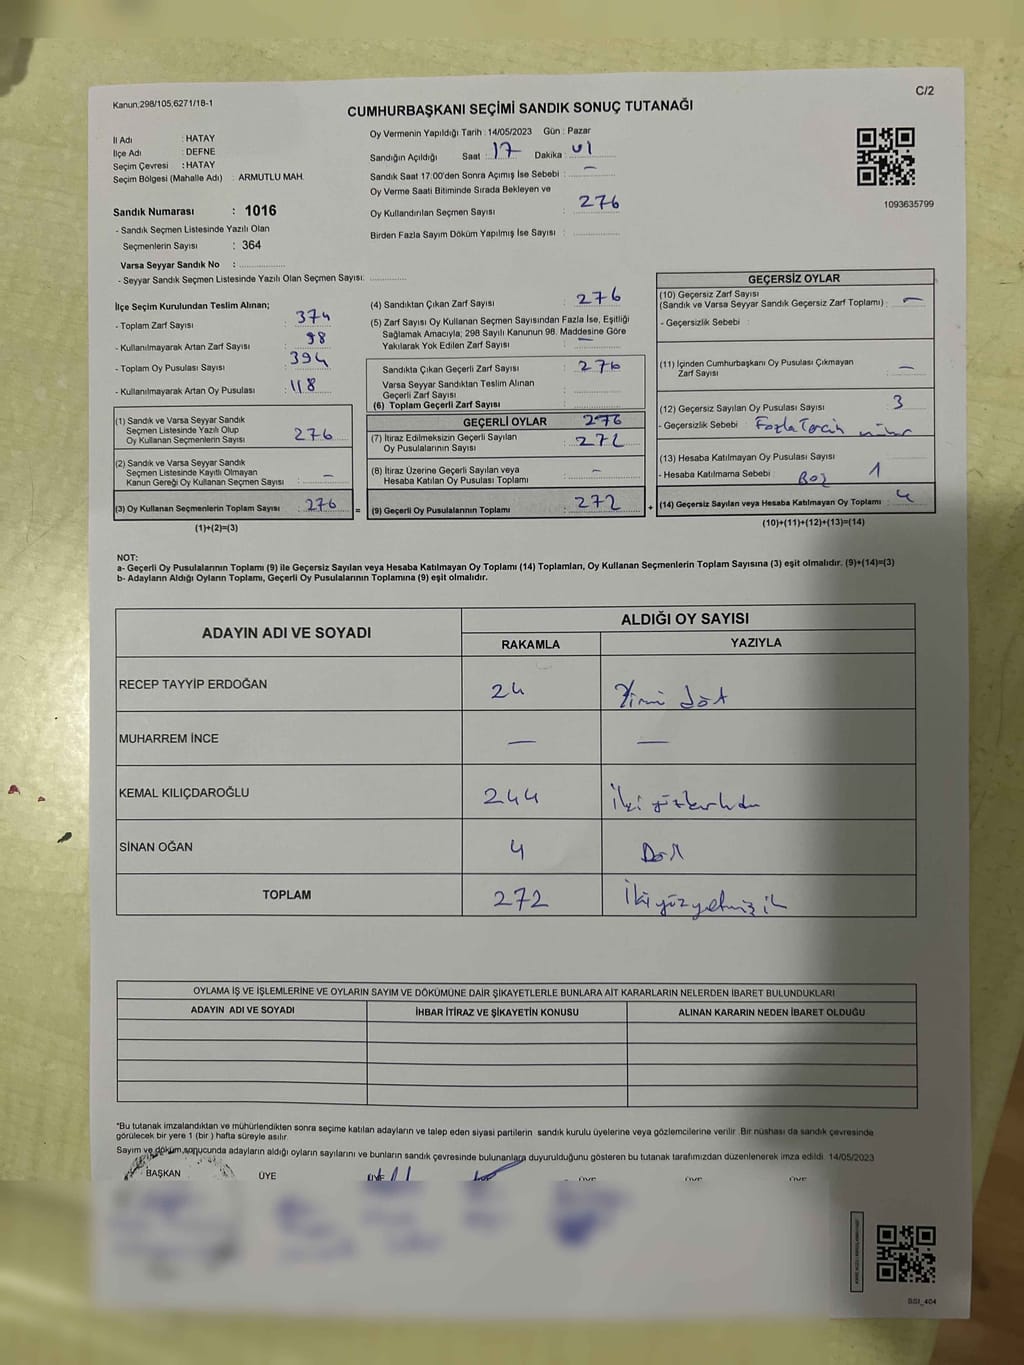 Kanun;298/105;6271/18-1
C/2
CUMHURBAŞKANI SEÇİMİ SANDIK SONUÇ TUTANAĞI
İl Adı : HATAY
İlçe Adı : DEFNE
Seçim Çevresi : HATAY
Seçim Bölgesi (Mahalle Adı) : ARMUTLU MAH.
Sandık Numarası : 1016
- Sandık Seçmen Listesinde Yazılı Olan
Seçmenlerin Sayısı : 364
Varsa Seyyar Sandık No :
- Seyyar Sandık Seçmen Listesinde Yazılı Olan Seçmen Sayısı:
Oy Vermenin Yapıldığı Tarih : 14/05/2023 Gün : Pazar
Sandığın Açıldığı Saat : 17 Dakika : 01
Sandık Saat 17:00'den Sonra Açımış İse Sebebi : —
Oy Verme Saati Bitiminde Sırada Bekleyen ve
Oy Kullandırılan Seçmen Sayısı : 276
Birden Fazla Sayım Döküm Yapılmış İse Sayısı :
1093635799
İlçe Seçim Kurulundan Teslim Alınan;
- Toplam Zarf Sayısı : 374
- Kullanılmayarak Artan Zarf Sayısı : 98
- Toplam Oy Pusulası Sayısı : 394
- Kullanılmayarak Artan Oy Pusulası : 118
(1) Sandık ve Varsa Seyyar Sandık
Seçmen Listesinde Yazılı Olup
Oy Kullanan Seçmenlerin Sayısı : 276
(2) Sandık ve Varsa Seyyar Sandık
Seçmen Listesinde Kayıtlı Olmayan
Kanun Gereği Oy Kullanan Seçmen Sayısı : —
(3) Oy Kullanan Seçmenlerin Toplam Sayısı : 276 =
(1)+(2)=(3)
(4) Sandıktan Çıkan Zarf Sayısı : 276
(5) Zarf Sayısı Oy Kullanan Seçmen Sayısından Fazla İse, Eşitliği
Sağlamak Amacıyla; 298 Sayılı Kanunun 98. Maddesine Göre
Yakılarak Yok Edilen Zarf Sayısı : —
Sandıkta Çıkan Geçerli Zarf Sayısı : 276
Varsa Seyyar Sandıktan Teslim Alınan
Geçerli Zarf Sayısı :
(6) Toplam Geçerli Zarf Sayısı :
GEÇERLİ OYLAR 276
(7) İtiraz Edilmeksizin Geçerli Sayılan
Oy Pusulalarının Sayısı : 272
(8) İtiraz Üzerine Geçerli Sayılan veya
Hesaba Katılan Oy Pusulası Toplamı : —
(9) Geçerli Oy Pusulalarının Toplamı : 272 +
GEÇERSİZ OYLAR
(10) Geçersiz Zarf Sayısı
(Sandık ve Varsa Seyyar Sandık Geçersiz Zarf Toplamı) : —
- Geçersizlik Sebebi :
(11) İçinden Cumhurbaşkanı Oy Pusulası Çıkmayan
Zarf Sayısı : —
(12) Geçersiz Sayılan Oy Pusulası Sayısı : 3
- Geçersizlik Sebebi : Fazla Tercih
(13) Hesaba Katılmayan Oy Pusulası Sayısı : 1
- Hesaba Katılmama Sebebi : Boş
(14) Geçersiz Sayılan veya Hesaba Katılmayan Oy Toplamı : 4
(10)+(11)+(12)+(13)=(14)
NOT:
a- Geçerli Oy Pusulalarının Toplamı (9) ile Geçersiz Sayılan veya Hesaba Katılmayan Oy Toplamı (14) Toplamları, Oy Kullanan Seçmenlerin Toplam Sayısına (3) eşit olmalıdır. (9)+(14)=(3)
b- Adayların Aldığı Oyların Toplamı, Geçerli Oy Pusulalarının Toplamına (9) eşit olmalıdır.
ADAYIN ADI VE SOYADI
ALDIĞI OY SAYISI
RAKAMLA YAZIYLA
RECEP TAYYİP ERDOĞAN 24 Yirmi dört
MUHARREM İNCE — —
KEMAL KILIÇDAROĞLU 244 İki yüz
SİNAN OĞAN 4 Dört
TOPLAM 272 İki yüz yetmiş iki
OYLAMA İŞ VE İŞLEMLERİNE VE OYLARIN SAYIM VE DÖKÜMÜNE DAİR ŞİKAYETLERLE BUNLARA AİT KARARLARIN NELERDEN İBARET BULUNDUKLARI
ADAYIN ADI VE SOYADI İHBAR İTİRAZ VE ŞİKAYETİN KONUSU ALINAN KARARIN NEDEN İBARET OLDUĞU
*Bu tutanak imzalandıktan ve mühürlendikten sonra seçime katılan adayların ve talep eden siyasi partilerin sandık kurulu üyelerine veya gözlemcilerine verilir. Bir nüshası da sandık çevresinde
görülecek bir yere 1 (bir) hafta süreyle asılır.
Sayım ve döküm sonucunda adayların aldığı oyların sayılarını ve bunların sandık çevresinde bulunanlara duyurulduğunu gösteren bu tutanak tarafımızdan düzenlenerek imza edildi. 14/05/2023
BAŞKAN ÜYE ÜYE ÜYE ÜYE ÜYE
BSI_404